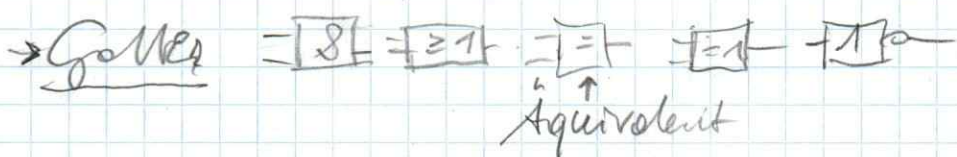 → Gatter & ≥1 = =1 1
Äquivalent